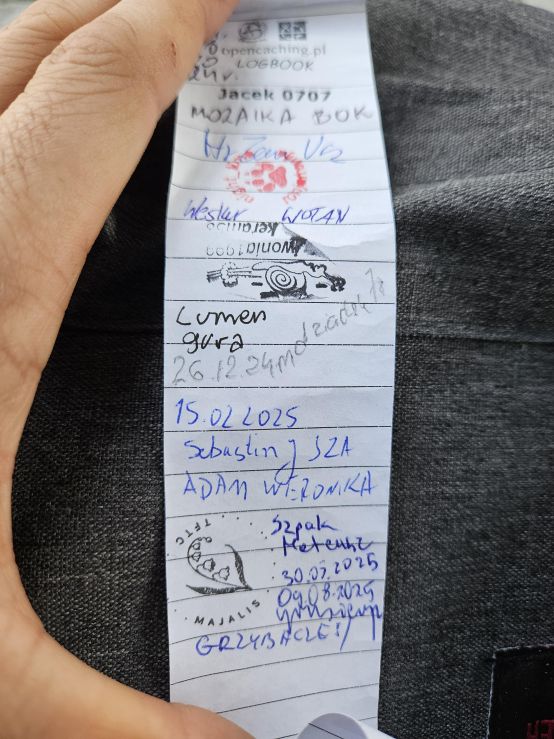 opencaching.pl
LOGBOOK
Jacek 0707
MOZAIKA BOK
Wesker WOTAN
Iwonia1999
Lumen
gura
26.12.24
15.02.2025
Sebastin J SZA
ADAM WERONIKA
TFTC
MAJALIS
Szpak
Mateusz
30.07.2025
09.08.2025
GRZYBACZE!